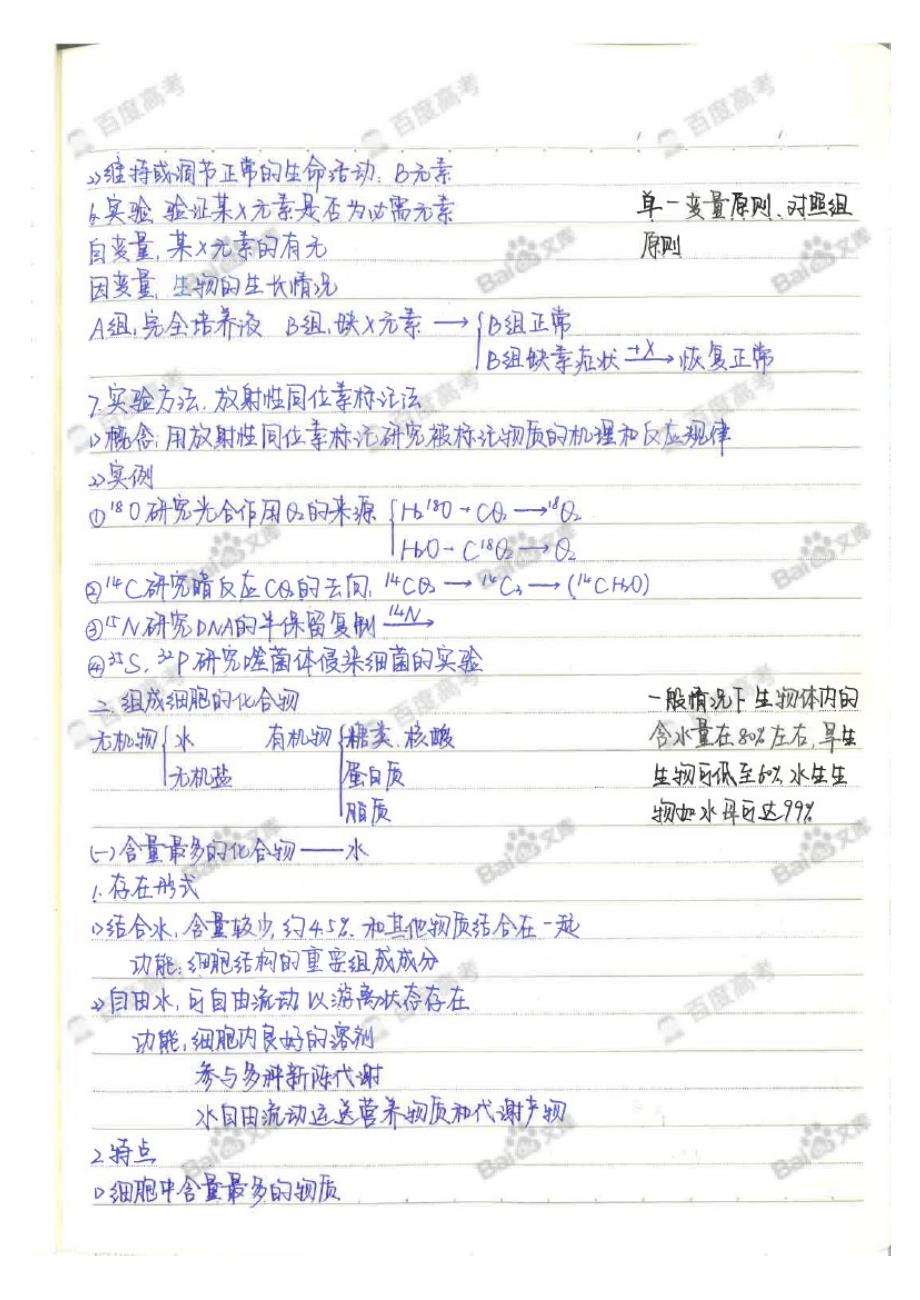 2>维持或调节正常的生命活动: B元素
6.实验 验证某X元素是否为必需元素
单一变量原则、对照组
自变量, 某X元素的有无
原则
因变量, 生物的生长情况
A组,完全培养液 B组,缺X元素 → { B组正常
B组缺素症状 +X→ 恢复正常
7.实验方法. 放射性同位素标记法
1>概念: 用放射性同位素标记研究被标记物质的机理和反应规律
2>实例
①¹⁸O研究光合作用O₂的来源 { H₂¹⁸O + CO₂ → ¹⁸O₂
H₂O - C¹⁸O₂ → O₂
②¹⁴C研究暗反应CO₂的去向, ¹⁴CO₂ → ¹⁴C₃ → (¹⁴CH₂O)
③¹⁵N研究DNA的半保留复制 ¹⁴N→
④³⁵S, ³²P研究噬菌体侵染细菌的实验
二. 组成细胞的化合物
一般情况下生物体内的
无机物 { 水 有机物 { 糖类. 核酸
含水量在80%左右, 旱生
无机盐 蛋白质
生物可低至60%, 水生生
脂质
物如水母可达99%
(一)含量最多的化合物——水
1. 存在形式
1>结合水, 含量较少, 约4.5% 和其他物质结合在一起
功能: 细胞结构的重要组成成分
2>自由水, 可自由流动 以游离状态存在
功能, 细胞内良好的溶剂
参与多种新陈代谢
水自由流动运送营养物质和代谢产物
2.特点
1>细胞中含量最多的物质
百度高考
Bai文库